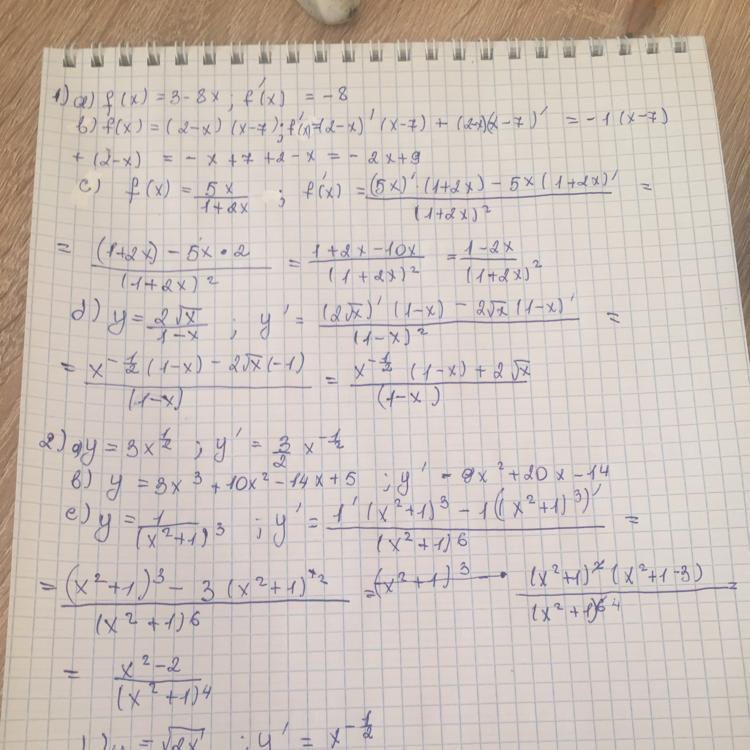 1) a) f(x) = 3 - 8x ; f'(x) = -8
b) f(x) = (2-x)(x-7) ; f'(x) = (2-x)' (x-7) + (2-x)(x-7)' = -1(x-7)
+ (2-x) = -x + 7 + 2 - x = -2x + 9
c) f(x) = 5x / 1+2x ; f'(x) = (5x)' · (1+2x) - 5x(1+2x)' / (1+2x)² =
= (1+2x) - 5x • 2 / (1+2x)² = 1+2x-10x / (1+2x)² = 1-2x / (1+2x)²
d) y = 2√x / 1-x ; y' = (2√x)' (1-x) - 2√x (1-x)' / (1-x)² =
= x^-½ (1-x) - 2√x (-1) / (1-x) = x^-½ (1-x) + 2√x / (1-x)
2) a) y = 3x^½ ; y' = 3/2 x^-½
b) y = 3x³ + 10x² - 14x + 5 ; y' - 9x² + 20x - 14
c) y = 1 / (x²+1)³ ; y' = 1' (x²+1)³ - 1((x²+1)³)' / (x²+1)⁶ =
= (x²+1)³ - 3(x²+1)² / (x²+1)⁶ = (x²+1)² (x²+1-3) / (x²+1)⁴ =
= x²-2 / (x²+1)⁴
y = √2x ; y' = x^-½